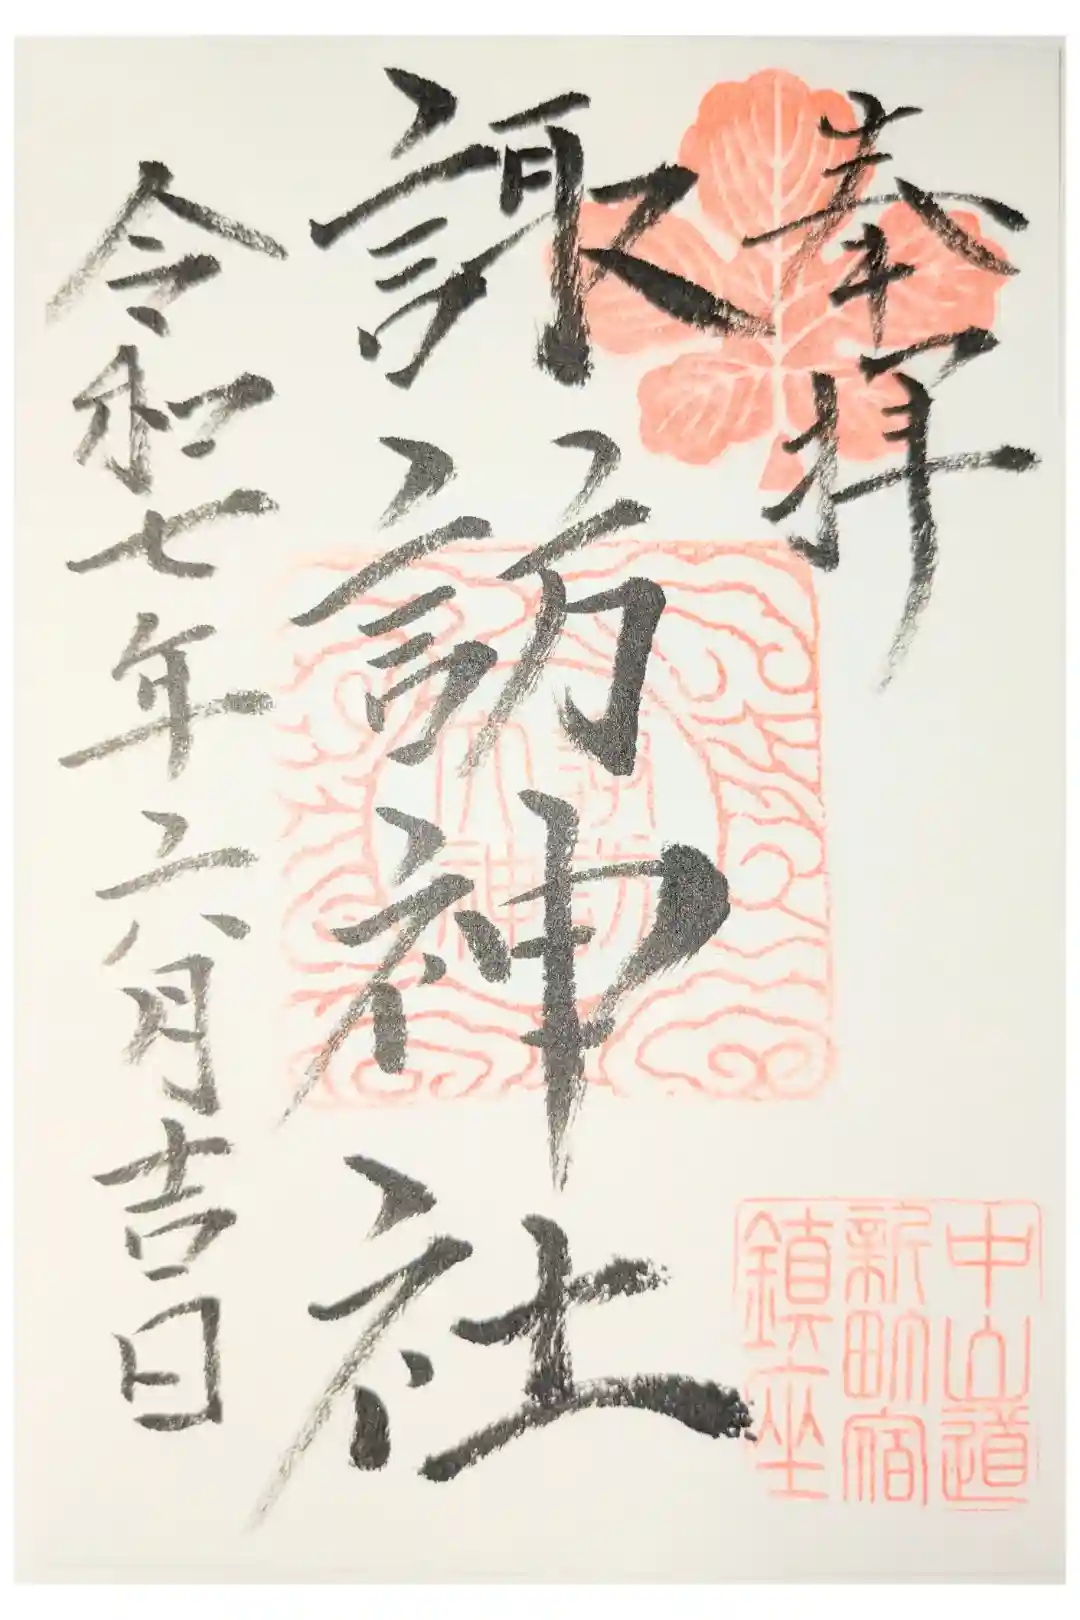 奉拝
諏訪神社
令和七年六月吉日
諏訪
大神
中山道
新町宿
鎮座